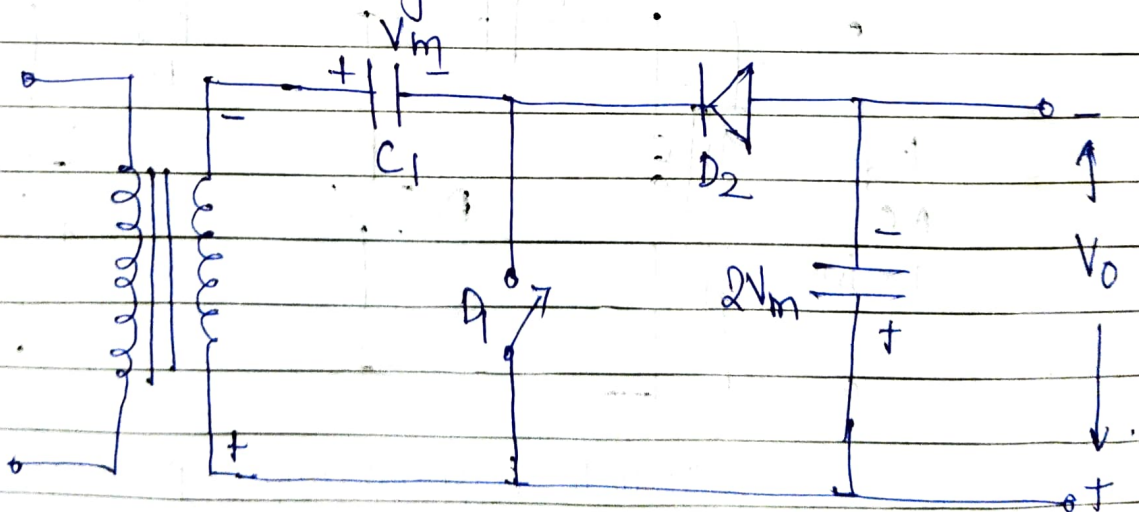 Vm
+ -
-
C1
D2
-
-
D1
2Vm
V0
+
+
+